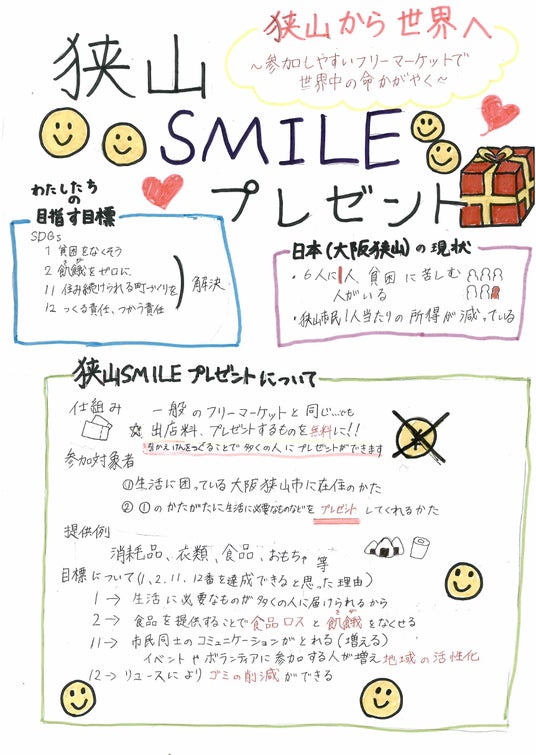 狭山から世界へ
～参加しやすいフリーマーケットで
世界中の命かがやく～
狭山
SMILE
プレゼント
わたしたち
の
目指す目標
SDGs
1 貧困をなくそう
2 飢餓をゼロに
11 住み続けられる町づくりを
12 つくる責任、つかう責任
解決
日本(大阪狭山)の現状
・6人に1人貧困に苦しむ
人がいる
・狭山市民1人当たりの所得が減っている
狭山SMILEプレゼントについて
仕組み
一般のフリーマーケットと同じ...でも
☆出店料、プレゼントするものを無料に!!
なかえけんをつくることで多くの人にプレゼントができます
参加対象者
①生活に困っている大阪狭山市に在住のかた
②①のかたがたに生活に必要なものなどをプレゼントしてくれるかた
提供例
消耗品、衣類、食品、おもちゃ等
目標について(1、2、11、12番を達成できると思った理由)
1→生活に必要なものが多くの人に届けられるから
2→食品を提供することで食品ロスと飢餓をなくせる
11→市民同士のコミュニケーションがとれる(増える)
イベントやボランティアに参加する人が増え地域の活性化
12→リユースによりゴミの削減ができる